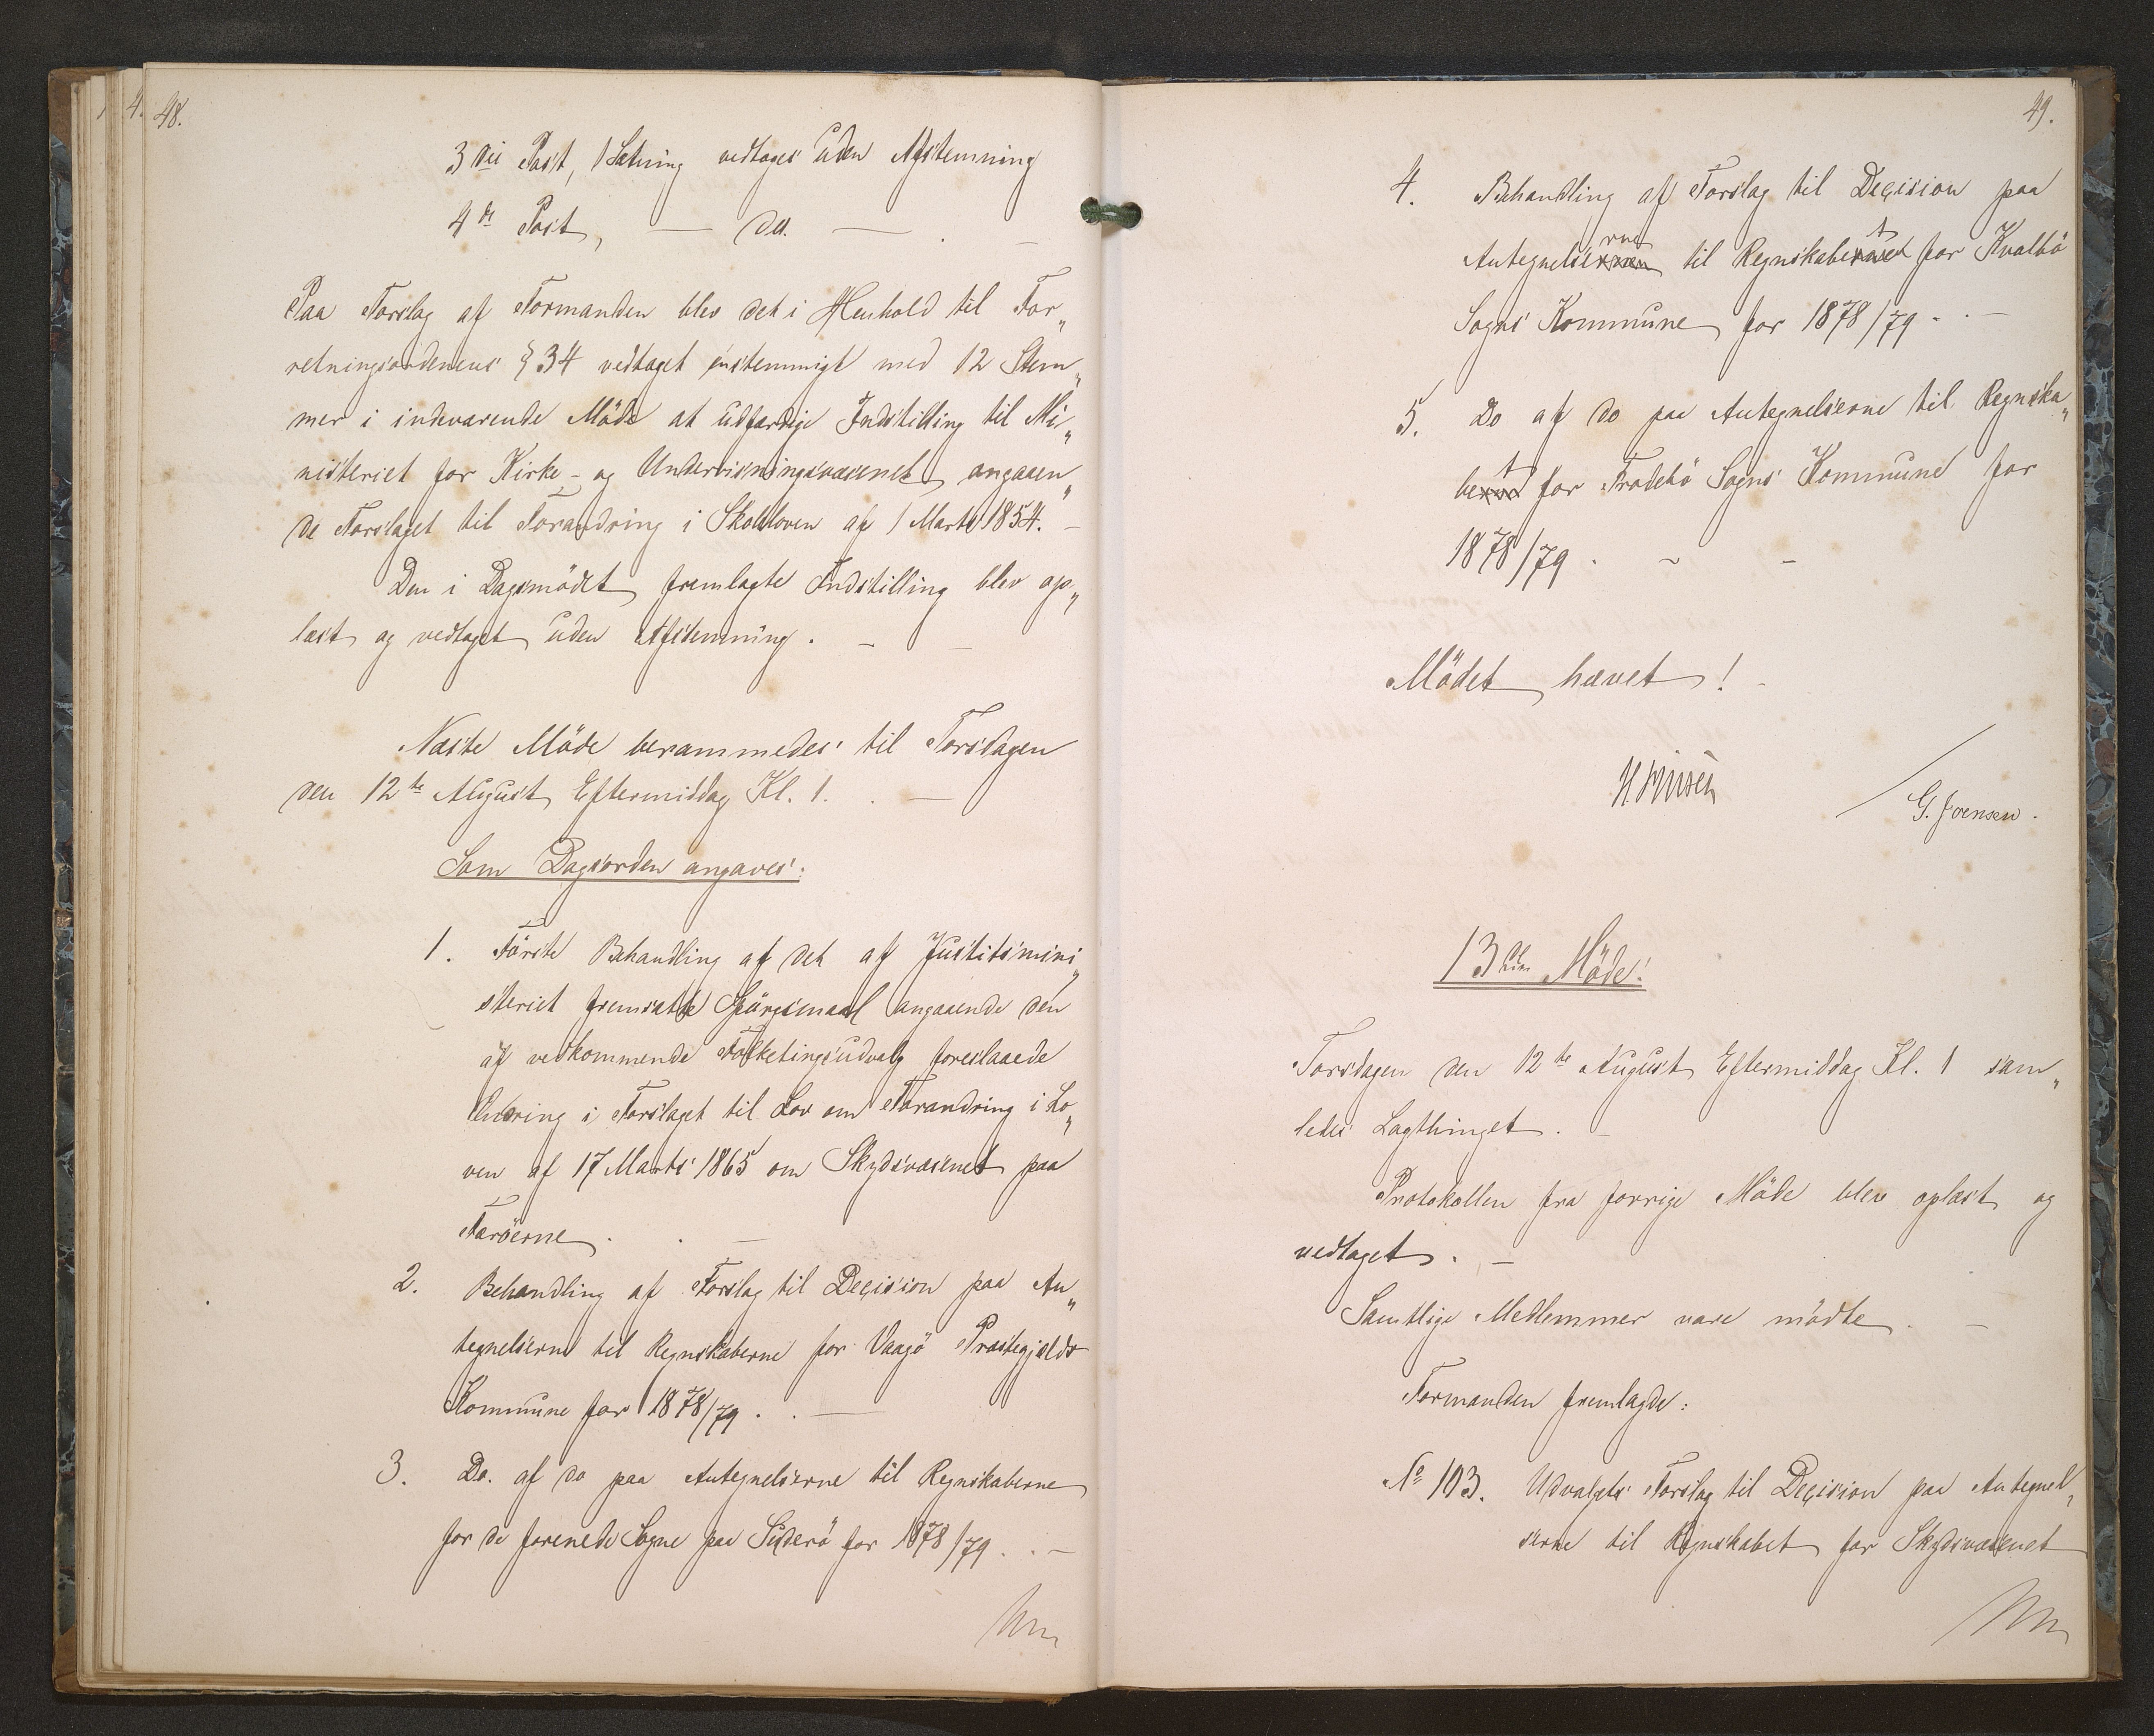 48.
3die Post, 1 Sætning vedtages uden Afstemning
4de Post, — do. —
Paa Forslag af Formanden blev det i Henhold til For„
retningsordenens § 34 vedtaget enstemmigt med 12 Stem„
mer i indeværende Möde at udfærdige Indstilling til Mi„
nisteriet for Kirke- og Undervisningsvæsenet angaaen„
de Forslaget til Forandring i Skoleloven af 1 Marts 1854. –
Den i Dagsmödet fremlagte Indstilling blev op„
læst og vedtaget uden Afstemning. –
Næste Möde berammedes til Torsdagen
den 12te August Eftermiddag Kl. 1. —
Som Dagsorden angaves:
1. Förste Behandling af det af Justitsmini„
steriet fremsatte Spörgsmaal angaaende den
af vedkommende Folketingsudvalg foreslaaede
Ændring i Forslaget til Lov om Forandring i Lo„
ven af 17 Marts 1865 om Skydsvæsenet paa
Færöerne. —
2. Behandling af Forslag til Decision paa An„
tegnelserne til Regnskaberne for Vaagö Præstegjælds
Kommune for 1878/79. —
3. Do. af do paa Antegnelserne til Regnskaberne
for de forenede Sogne paa Süderö for 1878/79. –
49.
4. Behandling af Forslag til Decision paa
Antegnelserne til Regnskabet for Kvalbö
Sogns Kommune for 1878/79. –
5. Do af do paa Antegnelserne til Regnska„
bet for Frodebö Sogns Kommune for
1878/79. –
Mödet hævet! –
G. Joensen.
13de Möde:
Torsdagen den 12te August Eftermiddag Kl. 1 sam„
ledes Lagthinget. –
Protokollen fra forrige Möde blev oplæst og
vedtaget. –
Samtlige Medlemmer vare mödte. –
Formanden fremlagde:
No 103. Udvalgets Forslag til Decision paa Antegnel„
serne til Regnskabet for Skydsvæsenet